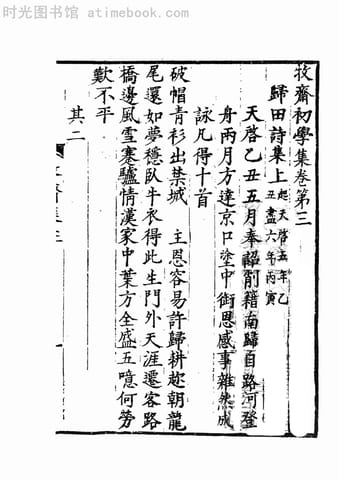 时光图书馆 - atimebook.com
牧齋初學集卷第三
歸田詩集上 起天啓五年乙
丑盡六年丙寅
天啓乙丑五月奉詔削籍南歸自路河登
舟兩月方達京口塗中銜恩感事雜然成
詠凡得十首
破帽青衫出禁城 主恩容易許歸耕趂朝龍
尾還如夢穩臥牛衣得此生門外天涯遷客路
橋邊風雪蹇驢情漢家中葉方全盛五噫何勞
歎不平
其二